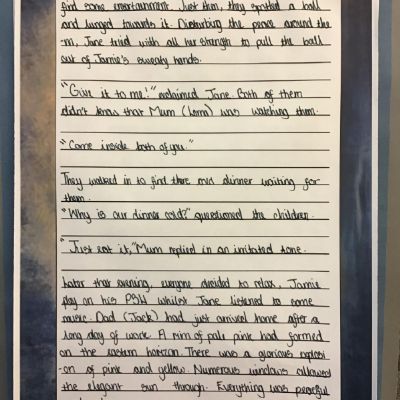 find some entertainment. Just then, they spotted a ball
and lunged towards it. Disturbing the peace around the
-m, Jane tried with all her strength to pull the ball
out of Jamie's sweaty hands.
"Give it to me!" exclaimed Jane. Both of them
didn't know that Mum (Lorna) was watching them.
"Come inside both of you."
They walked in to find there cold dinner waiting for
them.
"Why is our dinner cold?" questioned the children.
"Just eat it," Mum replied in an irritated tone.
Later that evening, everyone decided to relax. Jamie
play on his PS4 whilst Jane listened to some
music. Dad (Jack) had just arrived home after a
long day of work. A rim of pale pink had formed
on the eastern horizon. There was a glorious explosi
-on of pink and yellow. Numerous windows allowed
the elegant sun through. Everything was peaceful